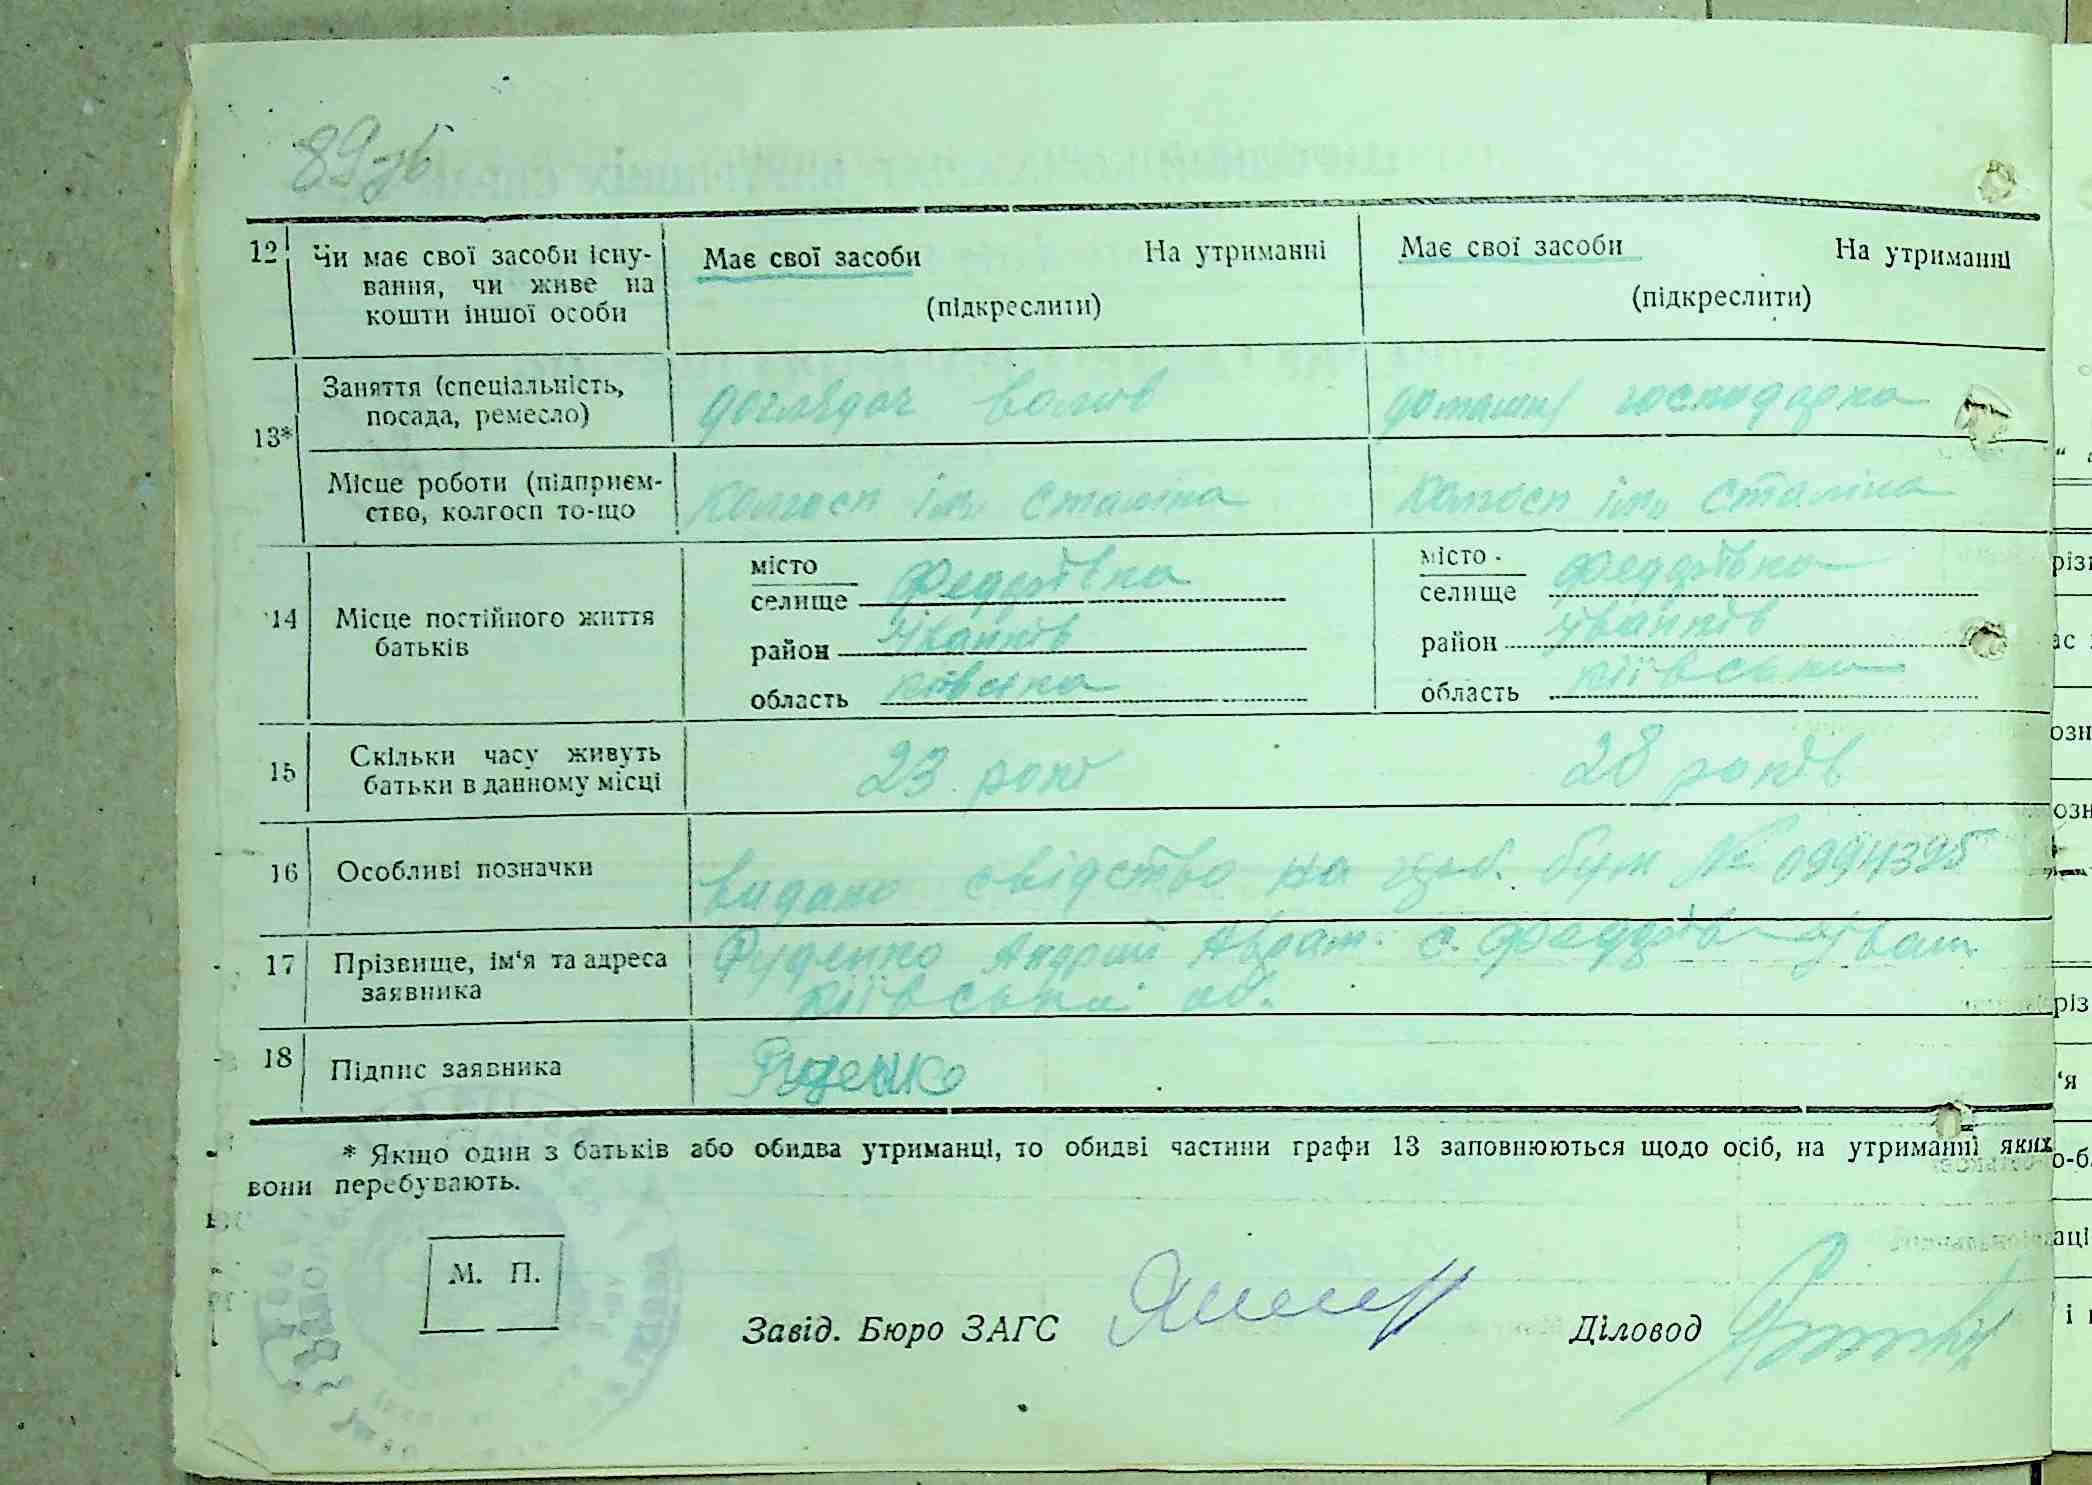 89зв
12 Чи має свої засоби існу-
вання, чи живе на
кошти іншої особи
Має свої засоби На утриманні
(підкреслити)
Має свої засоби На утриманні
(підкреслити)
13*
Заняття (спеціальність,
посада, ремесло)
доглядач волів
домашня господарка
Місце роботи (підприєм-
ство, колгосп то-що
Колгосп ім. Сталіна
Колгосп ім. Сталіна
14 Місце постійного життя
батьків
місто
селище Федорівка
район Іванків
область Київська
місто
селище Федорівка
район Іванків
область Київська
15 Скільки часу живуть
батьки в данному місці
23 роки
28 років
16 Особливі позначки
видано свідотство на бум №
17 Прізвище, ім'я та адреса
заявника
Руденко Андрій Абрам. с. Федорів Іван
Київської об.
18 Підпис заявника
Руденко
* Якщо один з батьків або обидва утриманці, то обидві частини графи 13 заповнюються щодо осіб, на утриманні яких
вони перебувають.
М. П.
Завід. Бюро ЗАГС
Діловод